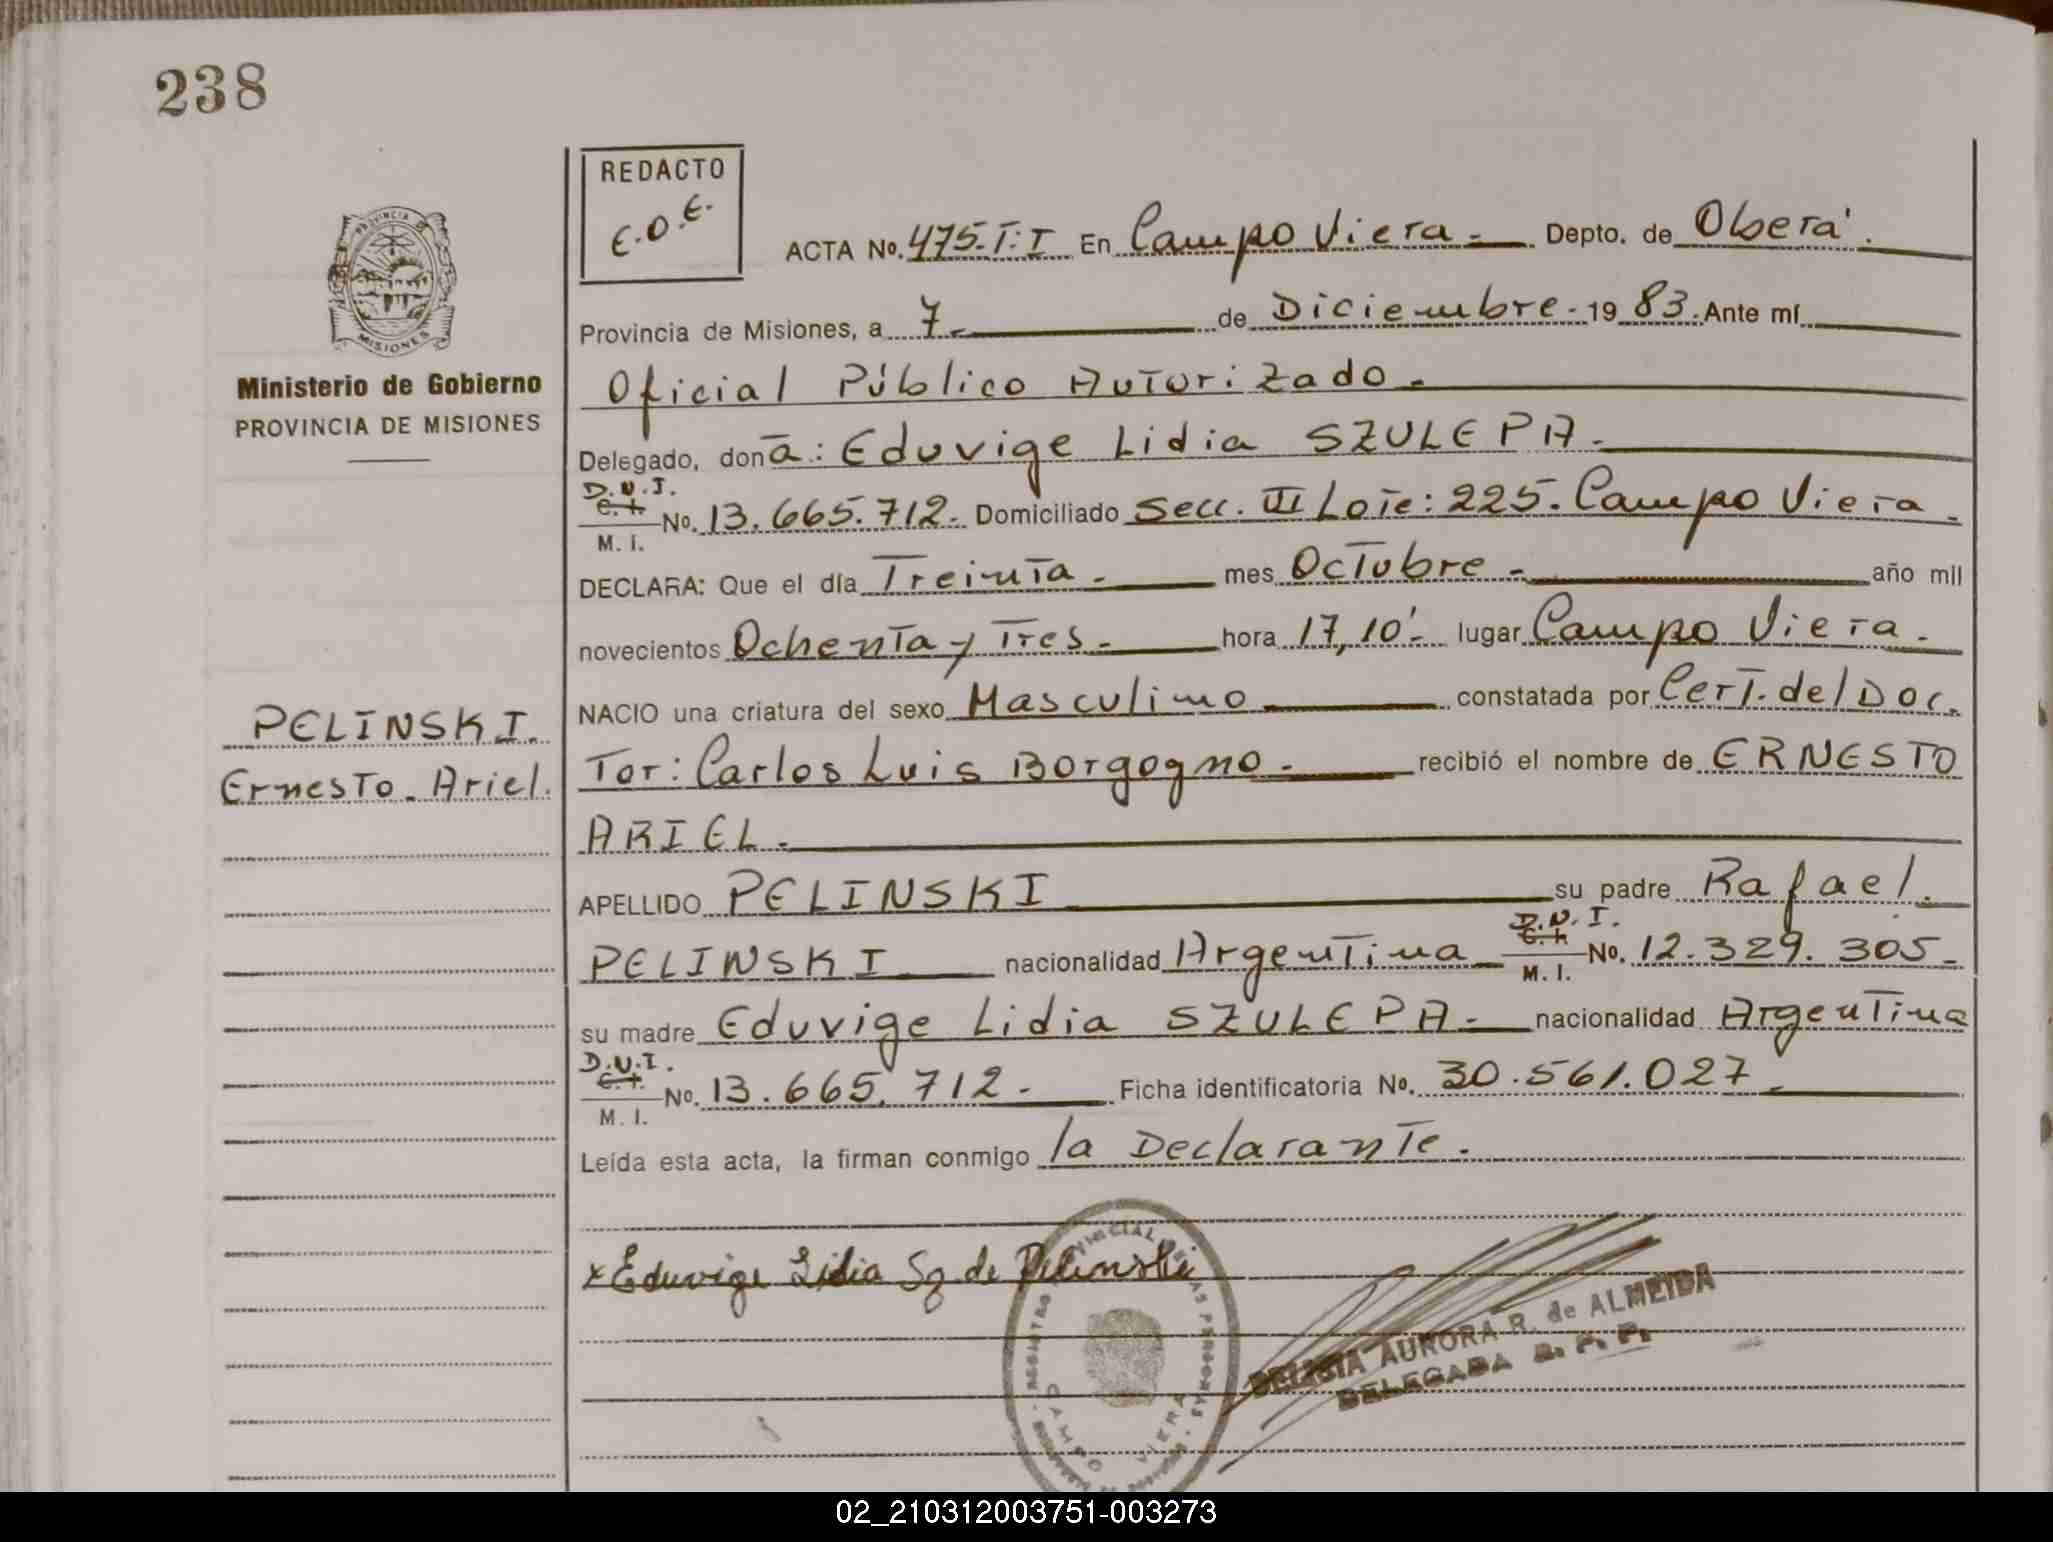 238
REDACTO
E.O.E.
PROVINCIA DE
MISIONES
Ministerio de Gobierno
PROVINCIA DE MISIONES
ACTA No. 475.T:I En Campo Viera.- Depto. de Oberá.
Provincia de Misiones, a 7.- de Diciembre.- 19 83. Ante mí
Oficial Público Autorizado.-
Delegado, don ā: Eduvige Lidia SZULEPA.-
D.N.I.
C.I. No. 13.665.712.- Domiciliado Secc. III Lote: 225. Campo Viera.
M. I.
DECLARA: Que el día Treinta.- mes Octubre.- año mil
novecientos Ochenta y Tres.- hora 17,10'.- lugar Campo Viera.
NACIO una criatura del sexo Masculino constatada por Cert. del Doc.
PELINSKI.
Ernesto. Ariel.
Tor: Carlos Luis Borgogno.- recibió el nombre de ERNESTO
ARIEL.-
APELLIDO PELINSKI su padre Rafael.
D.N.I.
PELINSKI nacionalidad Argentina C.I. No. 12.329.305.-
M. I.
su madre Eduvige Lidia SZULEPA.- nacionalidad Argentina
D.N.I.
C.I. No. 13.665.712.- Ficha identificatoria No. 30.561.027.-
M. I.
Leída esta acta, la firman conmigo la Declarante.
x Eduvige Lidia Sz de Pelinski
REGISTRO PROVINCIAL DE LAS PERSONAS
CAMPO VIERA
DELISIA AURORA R. de ALMEIDA
DELEGADA R. P. P.
02_210312003751-003273